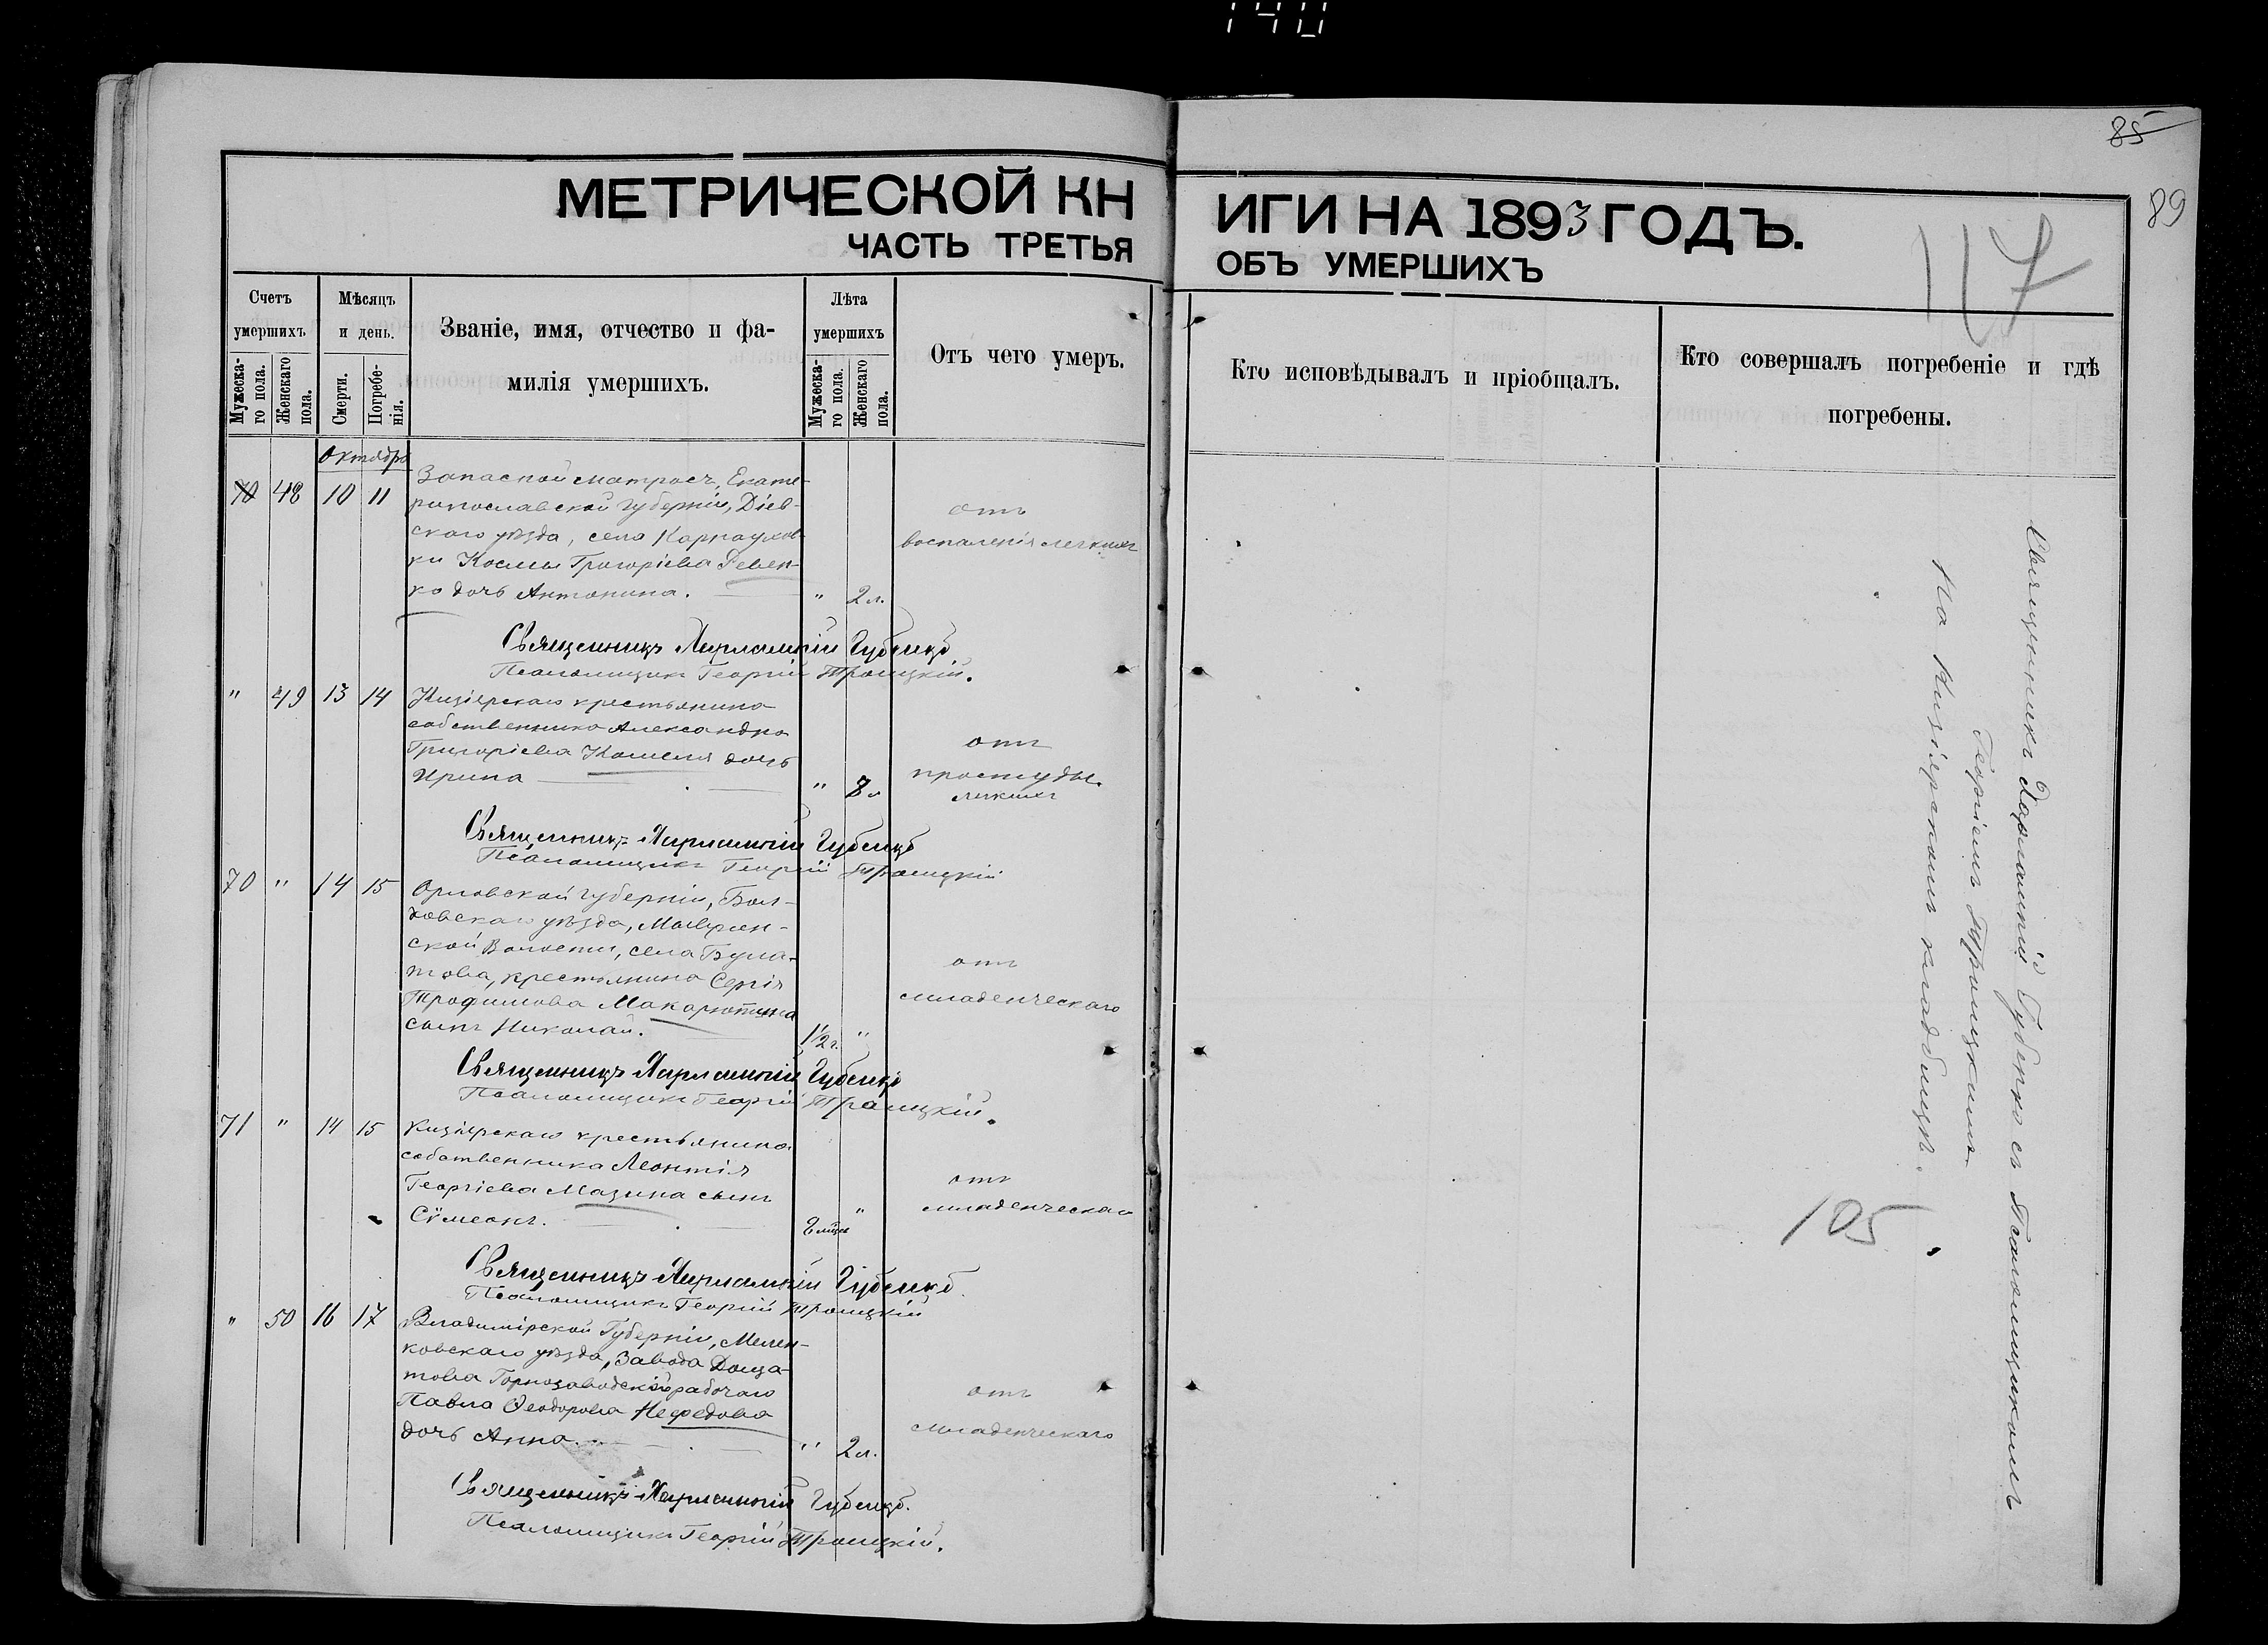 140
85
89
МЕТРИЧЕСКОЙ КНИГИ НА 1893 ГОДЪ.
ЧАСТЬ ТРЕТЬЯ ОБЪ УМЕРШИХЪ
117
Счетъ умершихъ
Мужеска-
го пола.
Женскаго
пола.
Мѣсяцъ
и день.
Смерти.
Погребе-
нія.
Званіе, имя, отчество и фа-
милія умершихъ.
Лѣта
умершихъ
Мужеска-
го пола.
Женскаго
пола.
Отъ чего умеръ.
Кто исповѣдывалъ и пріобщалъ.
Кто совершалъ погребеніе и гдѣ
погребены.
Октябрь
70 48 10 11
Запасной матросъ, Екате-
ринославской губерніи,
скаго уѣзда, села Карнаухов-
ки Космы Григоріева Ревен-
ко дочь Антонина.
" 2 л.
отъ
воспаленія легкихъ
Священникъ Харлампій Губенко
Псаломщикъ Георгій Троицкій.
" 49 13 14
Кизіярскаго крестьянина
собственника Александра
Григоріева Кошеля дочь
Ирина
" 8 л
отъ
простуды
легкихъ
Священникъ Харлампій Губенко
Псаломщикъ Георгій Троицкій
70 " 14 15
Орловской губерніи, Бол-
ховскаго уѣзда,
ской Волости, села Була-
това, крестьянина Сергія
Трофимова Макарютина
сынъ Николай.
1 1/2 г. "
отъ
младенческаго
Священникъ Харлампій Губенко
Псаломщикъ Георгій Троицкій.
71 " 14 15
Кизіярскаго крестьянина
собственника Леонтія
Георгіева Мазина сынъ
Сѵмеонъ.
"
отъ
младенческаго
Священникъ Харлампій Губенко.
Псаломщикъ Георгій Троицкій
" 50 16 17
Владимірской Губерніи, Мелен-
ковскаго уѣзда, Завода Доща-
това Горнозаводскій рабочаго
Павла Ѳеодорова Нефедова
дочь Анна.
" 2 л.
отъ
младенческаго
Священникъ Харлампій Губенко.
Псаломщикъ Георгій Троицкій.
Священникъ Харлампій Губенко съ Псаломщикомъ
Георгіемъ Троицкимъ
На Кизіярскомъ кладбищѣ.
105